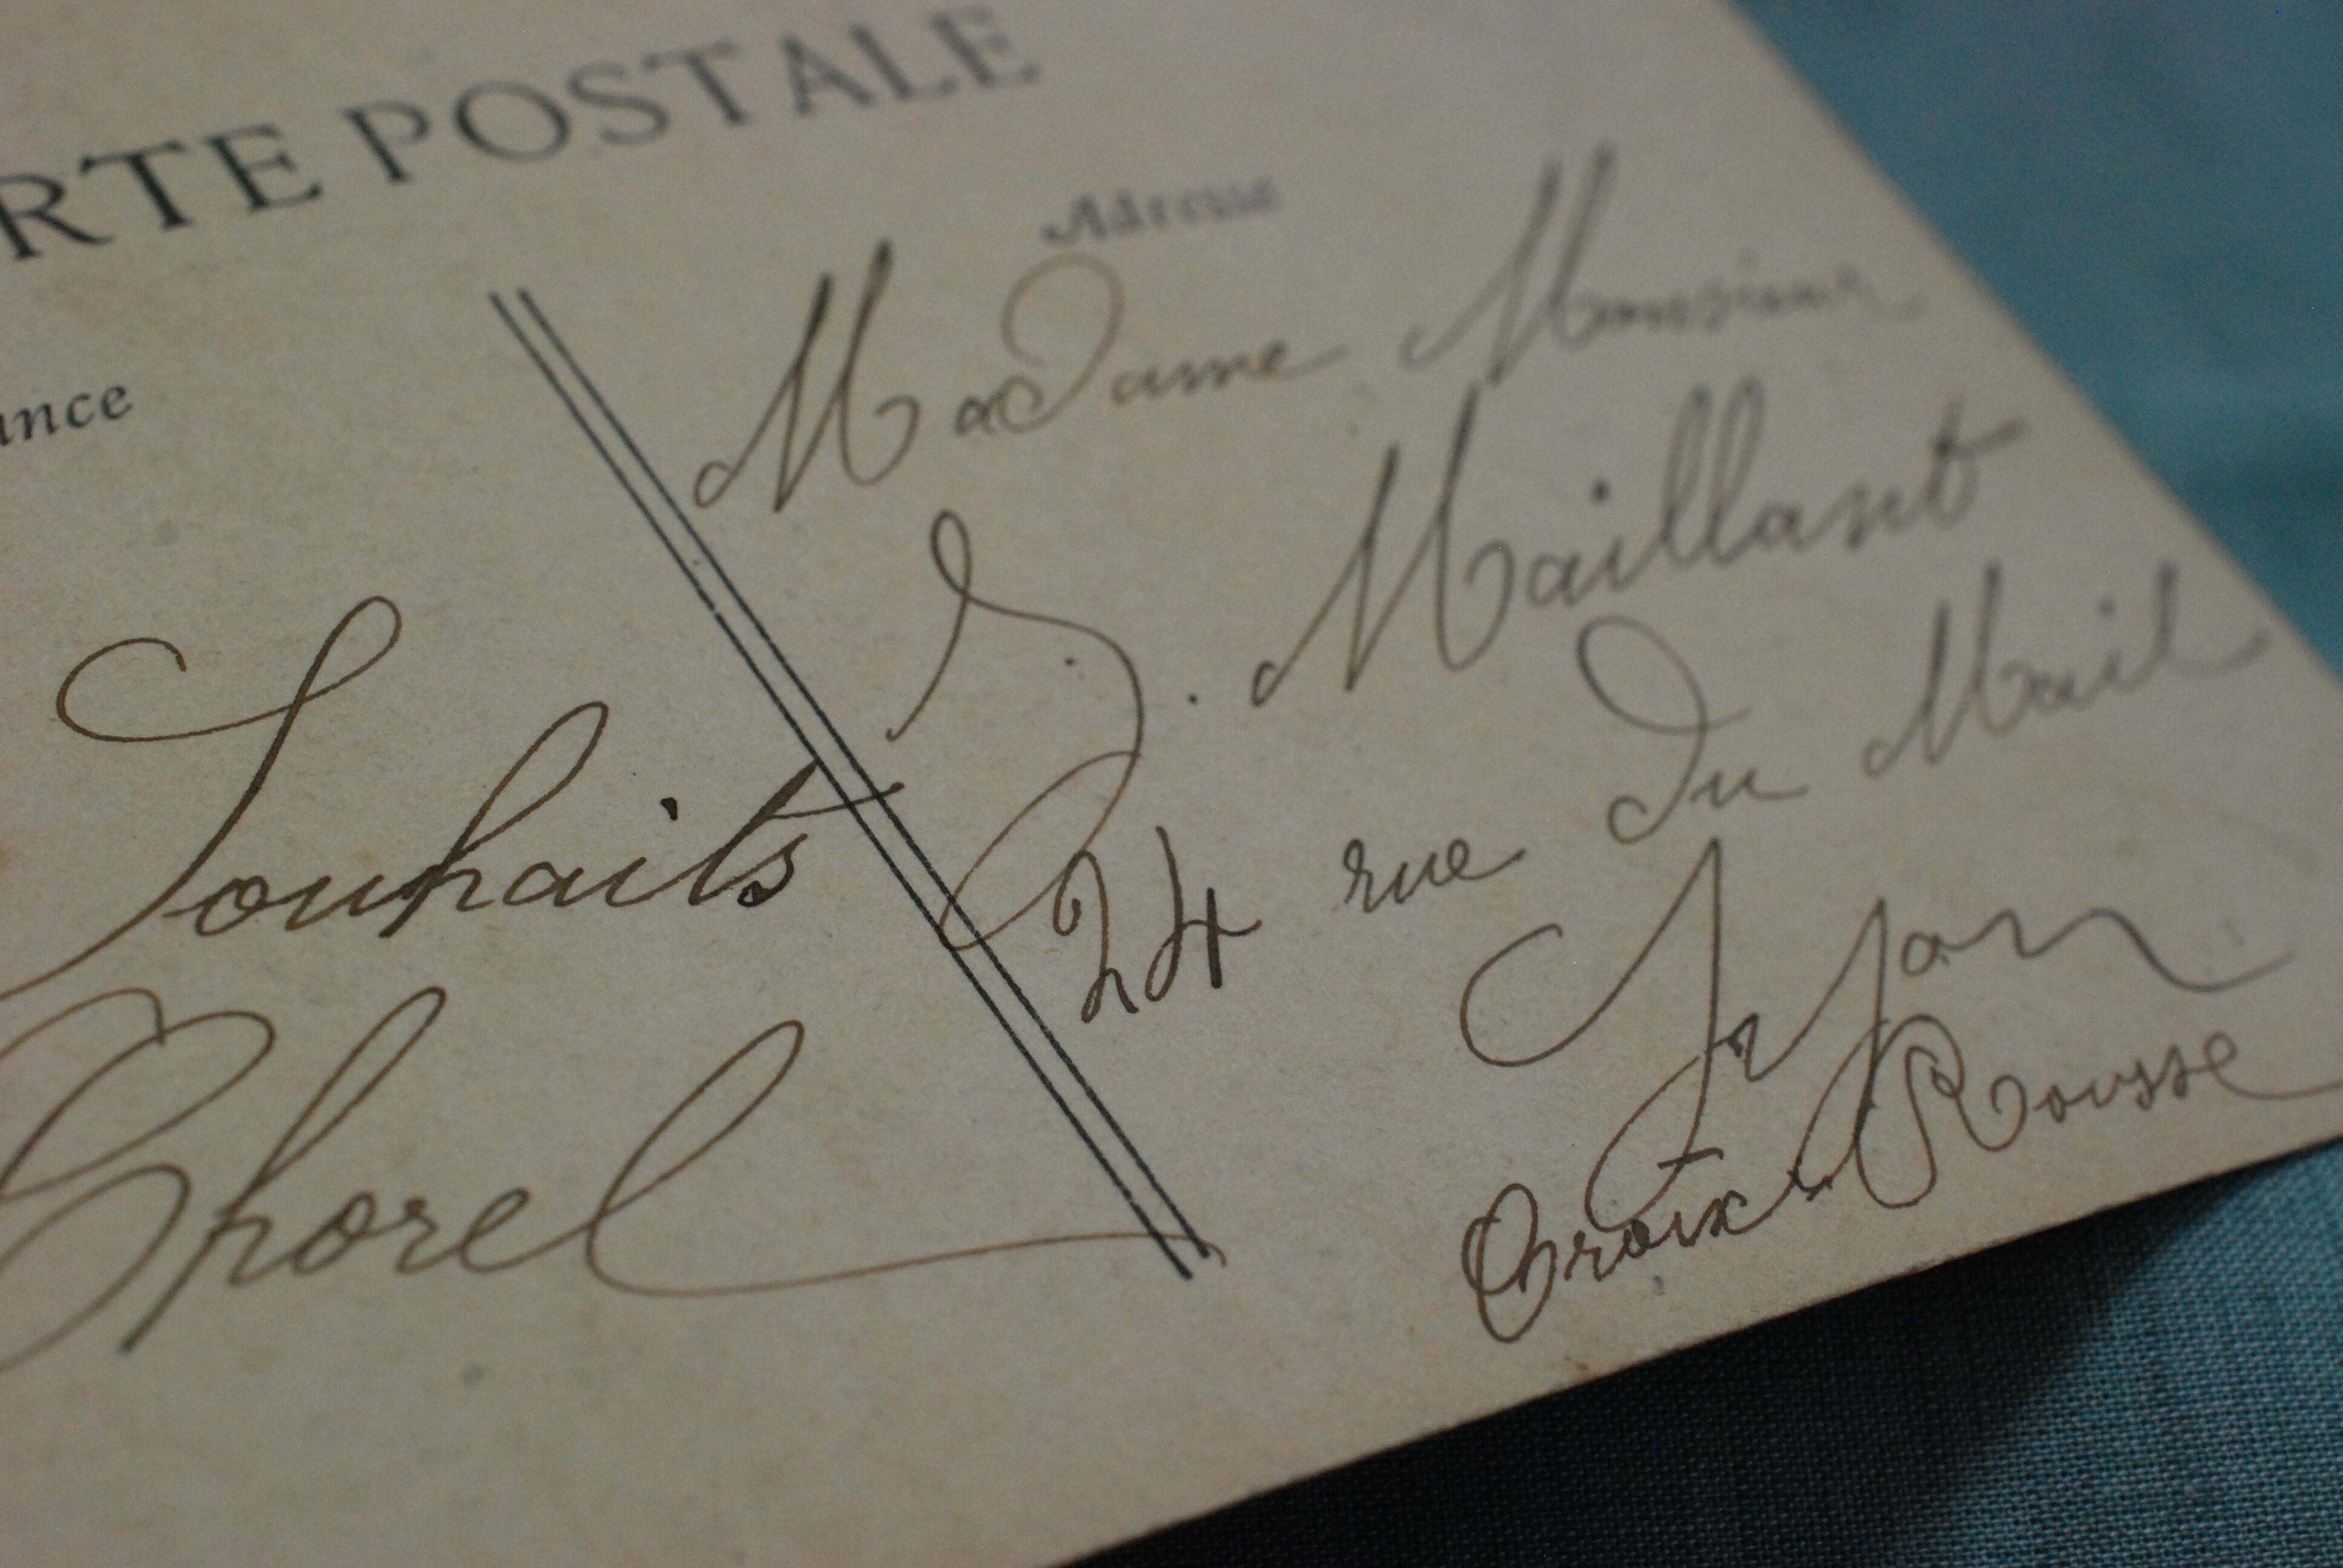 RTE POSTALE
ance
Adresse
Souhaits
Chorel
Madame Monsieur
J. Maillant
24 rue du Mail
Lyon
Croix-Rousse